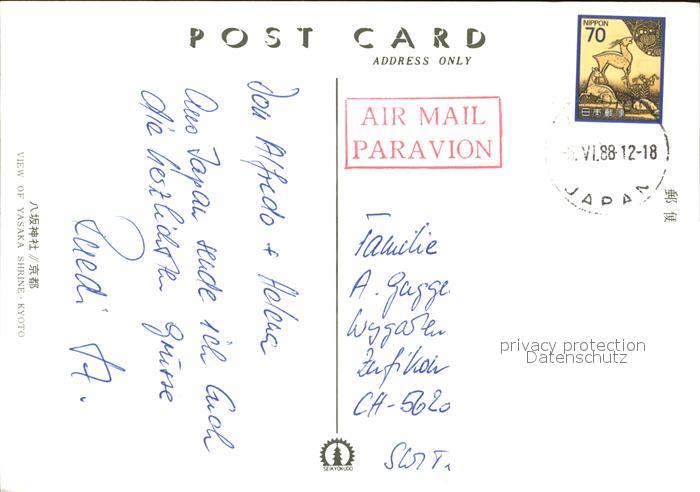 POST CARD
ADDRESS ONLY
NIPPON
70
日本郵便
VI.88 12-18
JAPAN
AIR MAIL
PARAVION
郵便
Alfredo + Helena
Aus Japan sende ich Euch
die herzlichsten Grüsse
Ruedi H.
Familie
A. Gugge
Wygarten
Zufikon
CH-5620
privacy protection
Datenschutz
八坂神社 // 京都
VIEW OF YASAKA SHRINE · KYOTO
SEIKYOKUDO